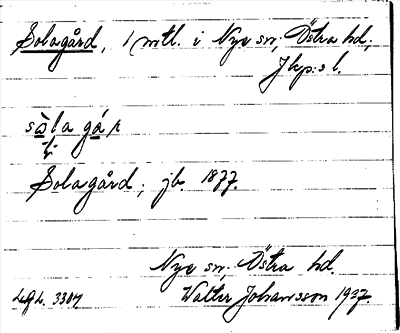 Solagård, 1 mtl. i Nye sn, Östra hd,
Jkp:s l.
Solagård; jb 1877.
Nye sn, Östra hd
Walter Johansson 1937